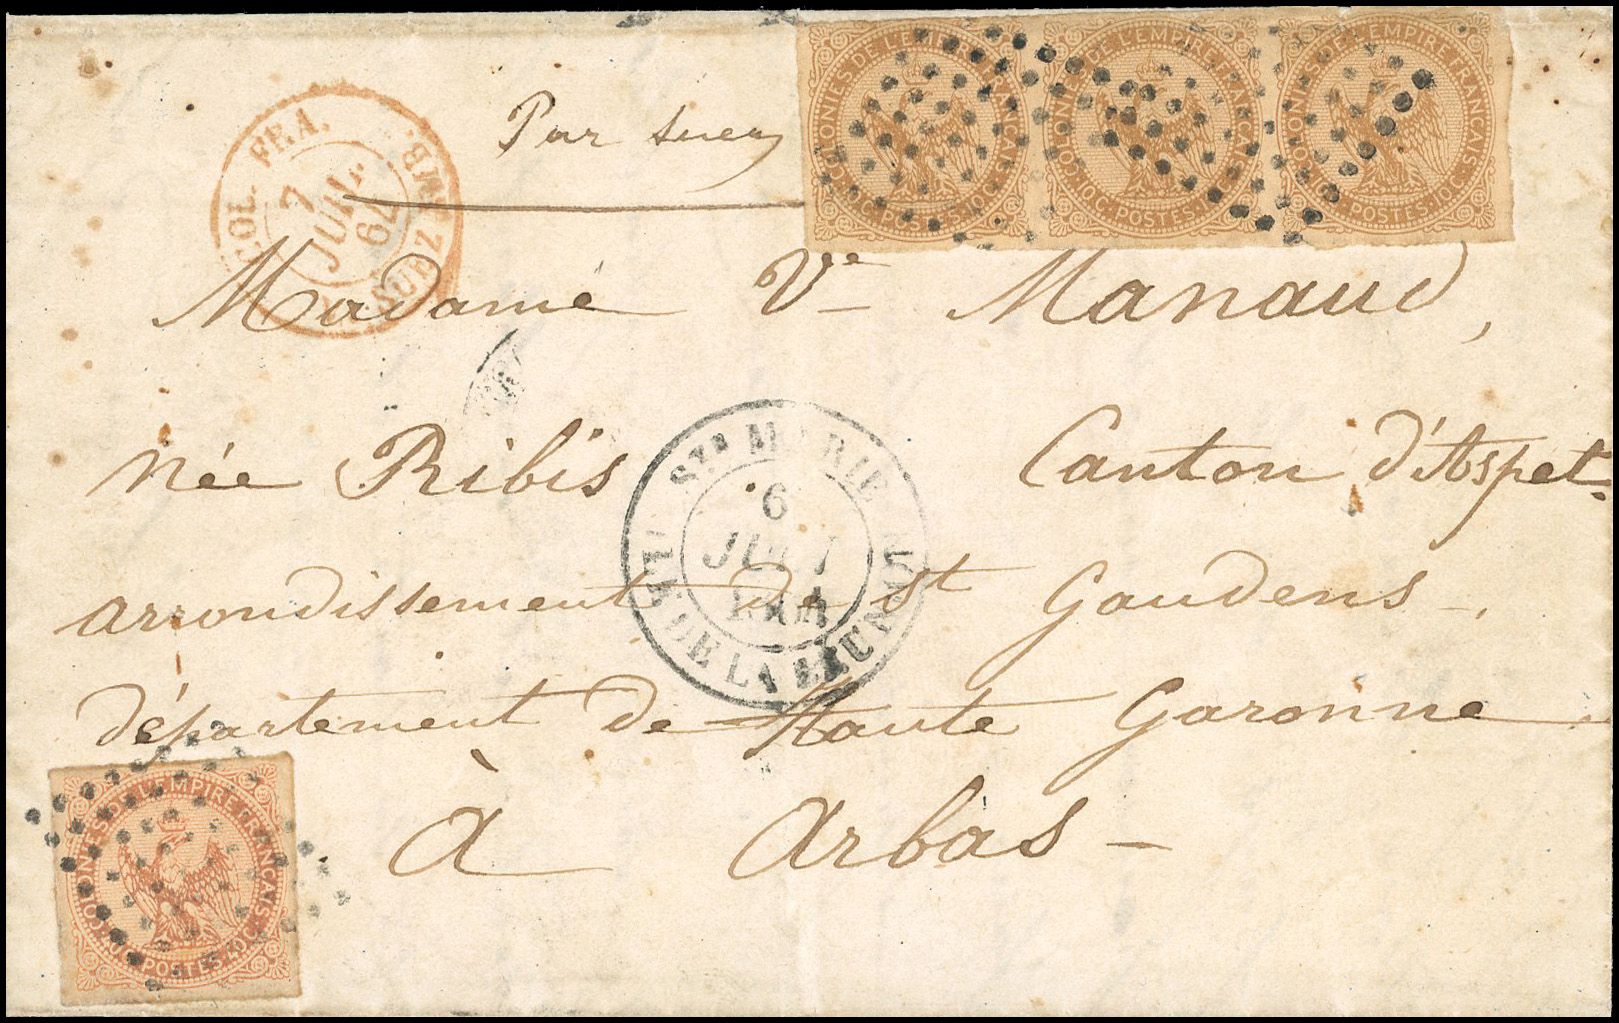 COLONIES DE L'EMPIRE FRANÇAIS
10C. POSTES. 10C.
COLONIES DE L'EMPIRE FRANÇAIS
10C. POSTES. 10C.
COLONIES DE L'EMPIRE FRANÇAIS
10C. POSTES. 10C.
COL. FRA.
7
JUIL.
64
SUEZ AMB.
Par Suez
Madame Ve Manaud,
née Ribis Canton d'Aspet.
arrondissement de St Gaudens,
département de Haute Garonne
à Arbas
STE MARIE
6
JUIN
ILE DE LA REUNION
COLONIES DE L'EMPIRE FRANÇAIS
40C. POSTES. 40C.